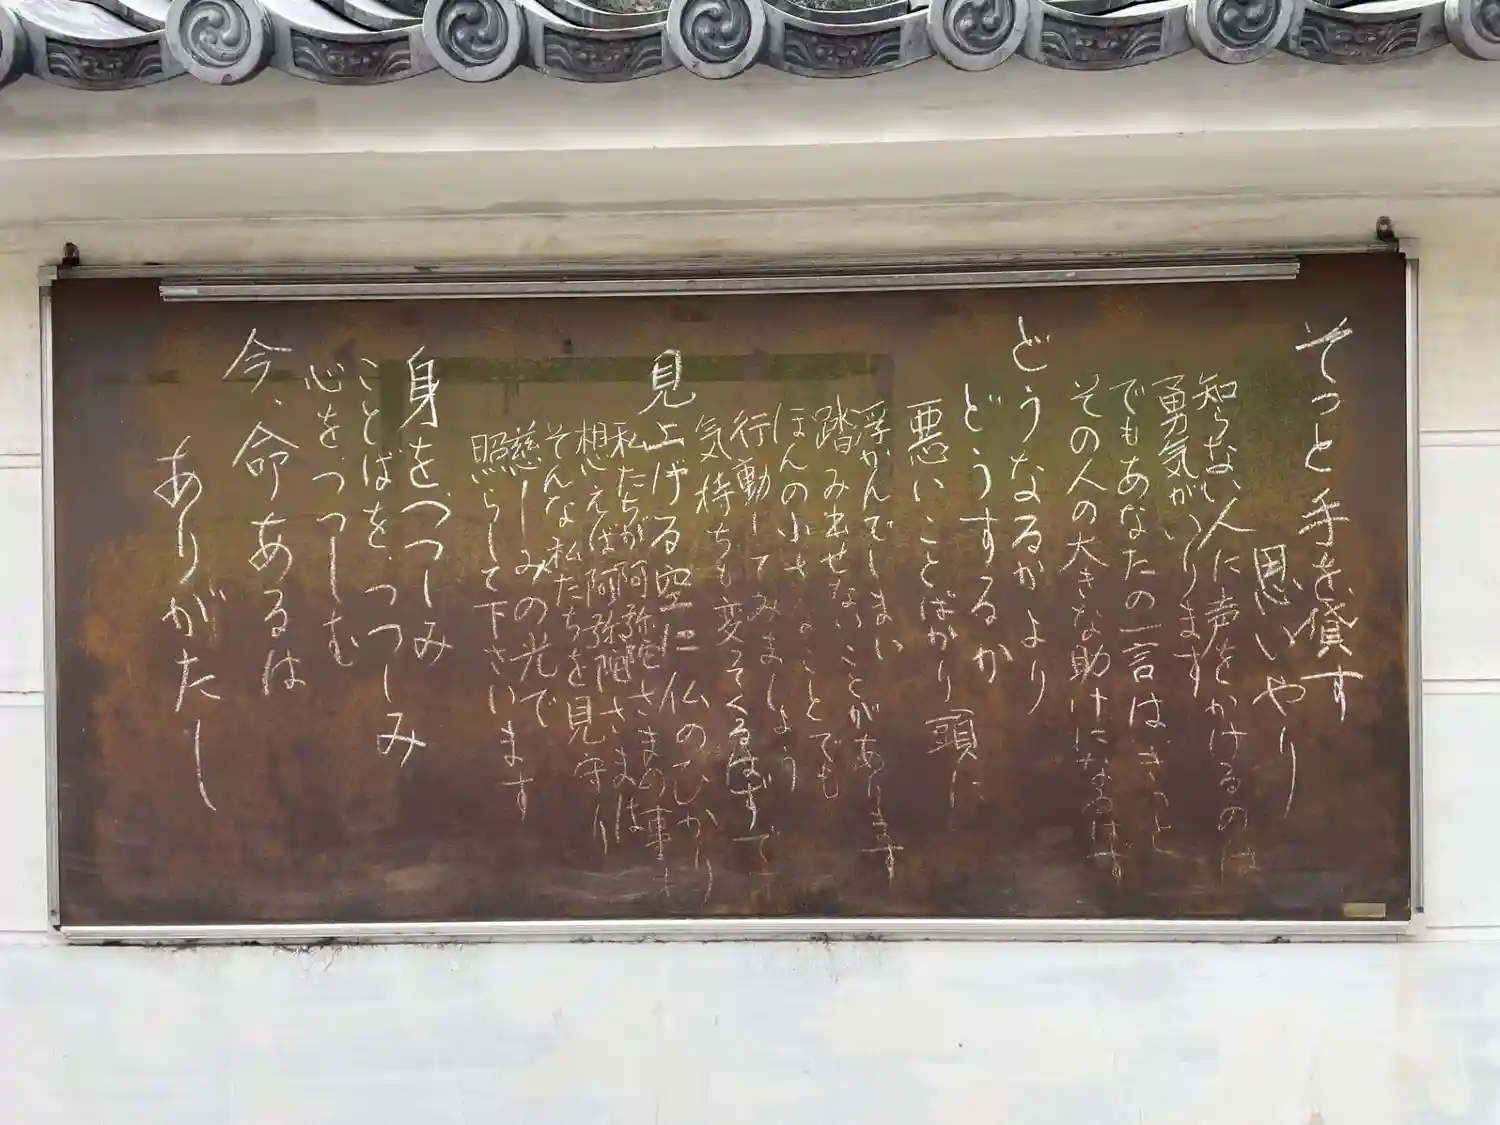 そっと手を貸す
思いやり
知らない人に声をかけるのは
勇気がいります
でもあなたの一言はきっと
その人の大きな助けになるはず
どうなるかより
どうするか
悪いことばかり頭に
浮かんでしまい
踏み出せないことがあります
ほんの小さなことでも
行動してみましょう
気持ちも変ってくるはずです
見上げる空に仏のひかり
私たちが阿弥陀さまの事を
想えば阿弥陀さまは
そんな私たちを見守り
慈しみの光で
照らして下さいます
身をつつしみ
ことばをつつしみ
心をつつしむ
今、命あるは
ありがたし